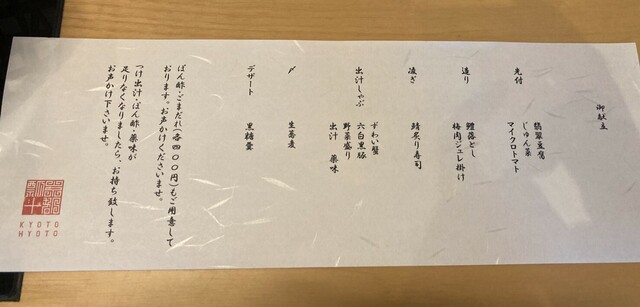 御献立
先付
翡翠豆腐
じゅん菜
マイクロトマト
造り
鱧落とし
梅肉ジュレ掛け
凌ぎ
鯖炙り寿司
出汁しゃぶ
ずわい蟹
六白黒豚
野菜盛り
出汁 薬味
〆
生蕎麦
デザート
黒糖葉
ぽん酢・ごまだれ(各四〇〇円)もご用意して
おります。お声かけくださいませ。
つけ出汁・ぽん酢・薬味が
足りなくなりましたら、お持ち致します。
お声かけ下さいませ。
KYOTO
HYOTO